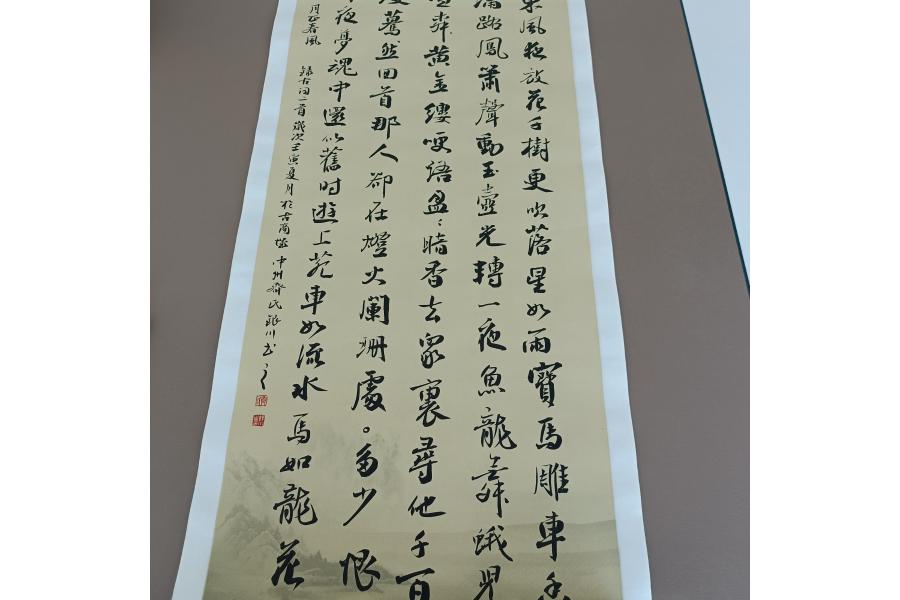 東風夜放花千樹更吹落星如雨寶馬雕車香
滿路鳳簫聲動玉壺光轉一夜魚龍舞蛾兒
黃金縷咲語盈〻暗香去眾裏尋他千百
度驀然回首那人卻在燈火闌珊處。多少恨
夜夢魂中還似舊時遊上苑車如流水馬如龍花
月正春風 錄古詞二首歲次壬寅夏月於古商城中州齊氏銀川書之